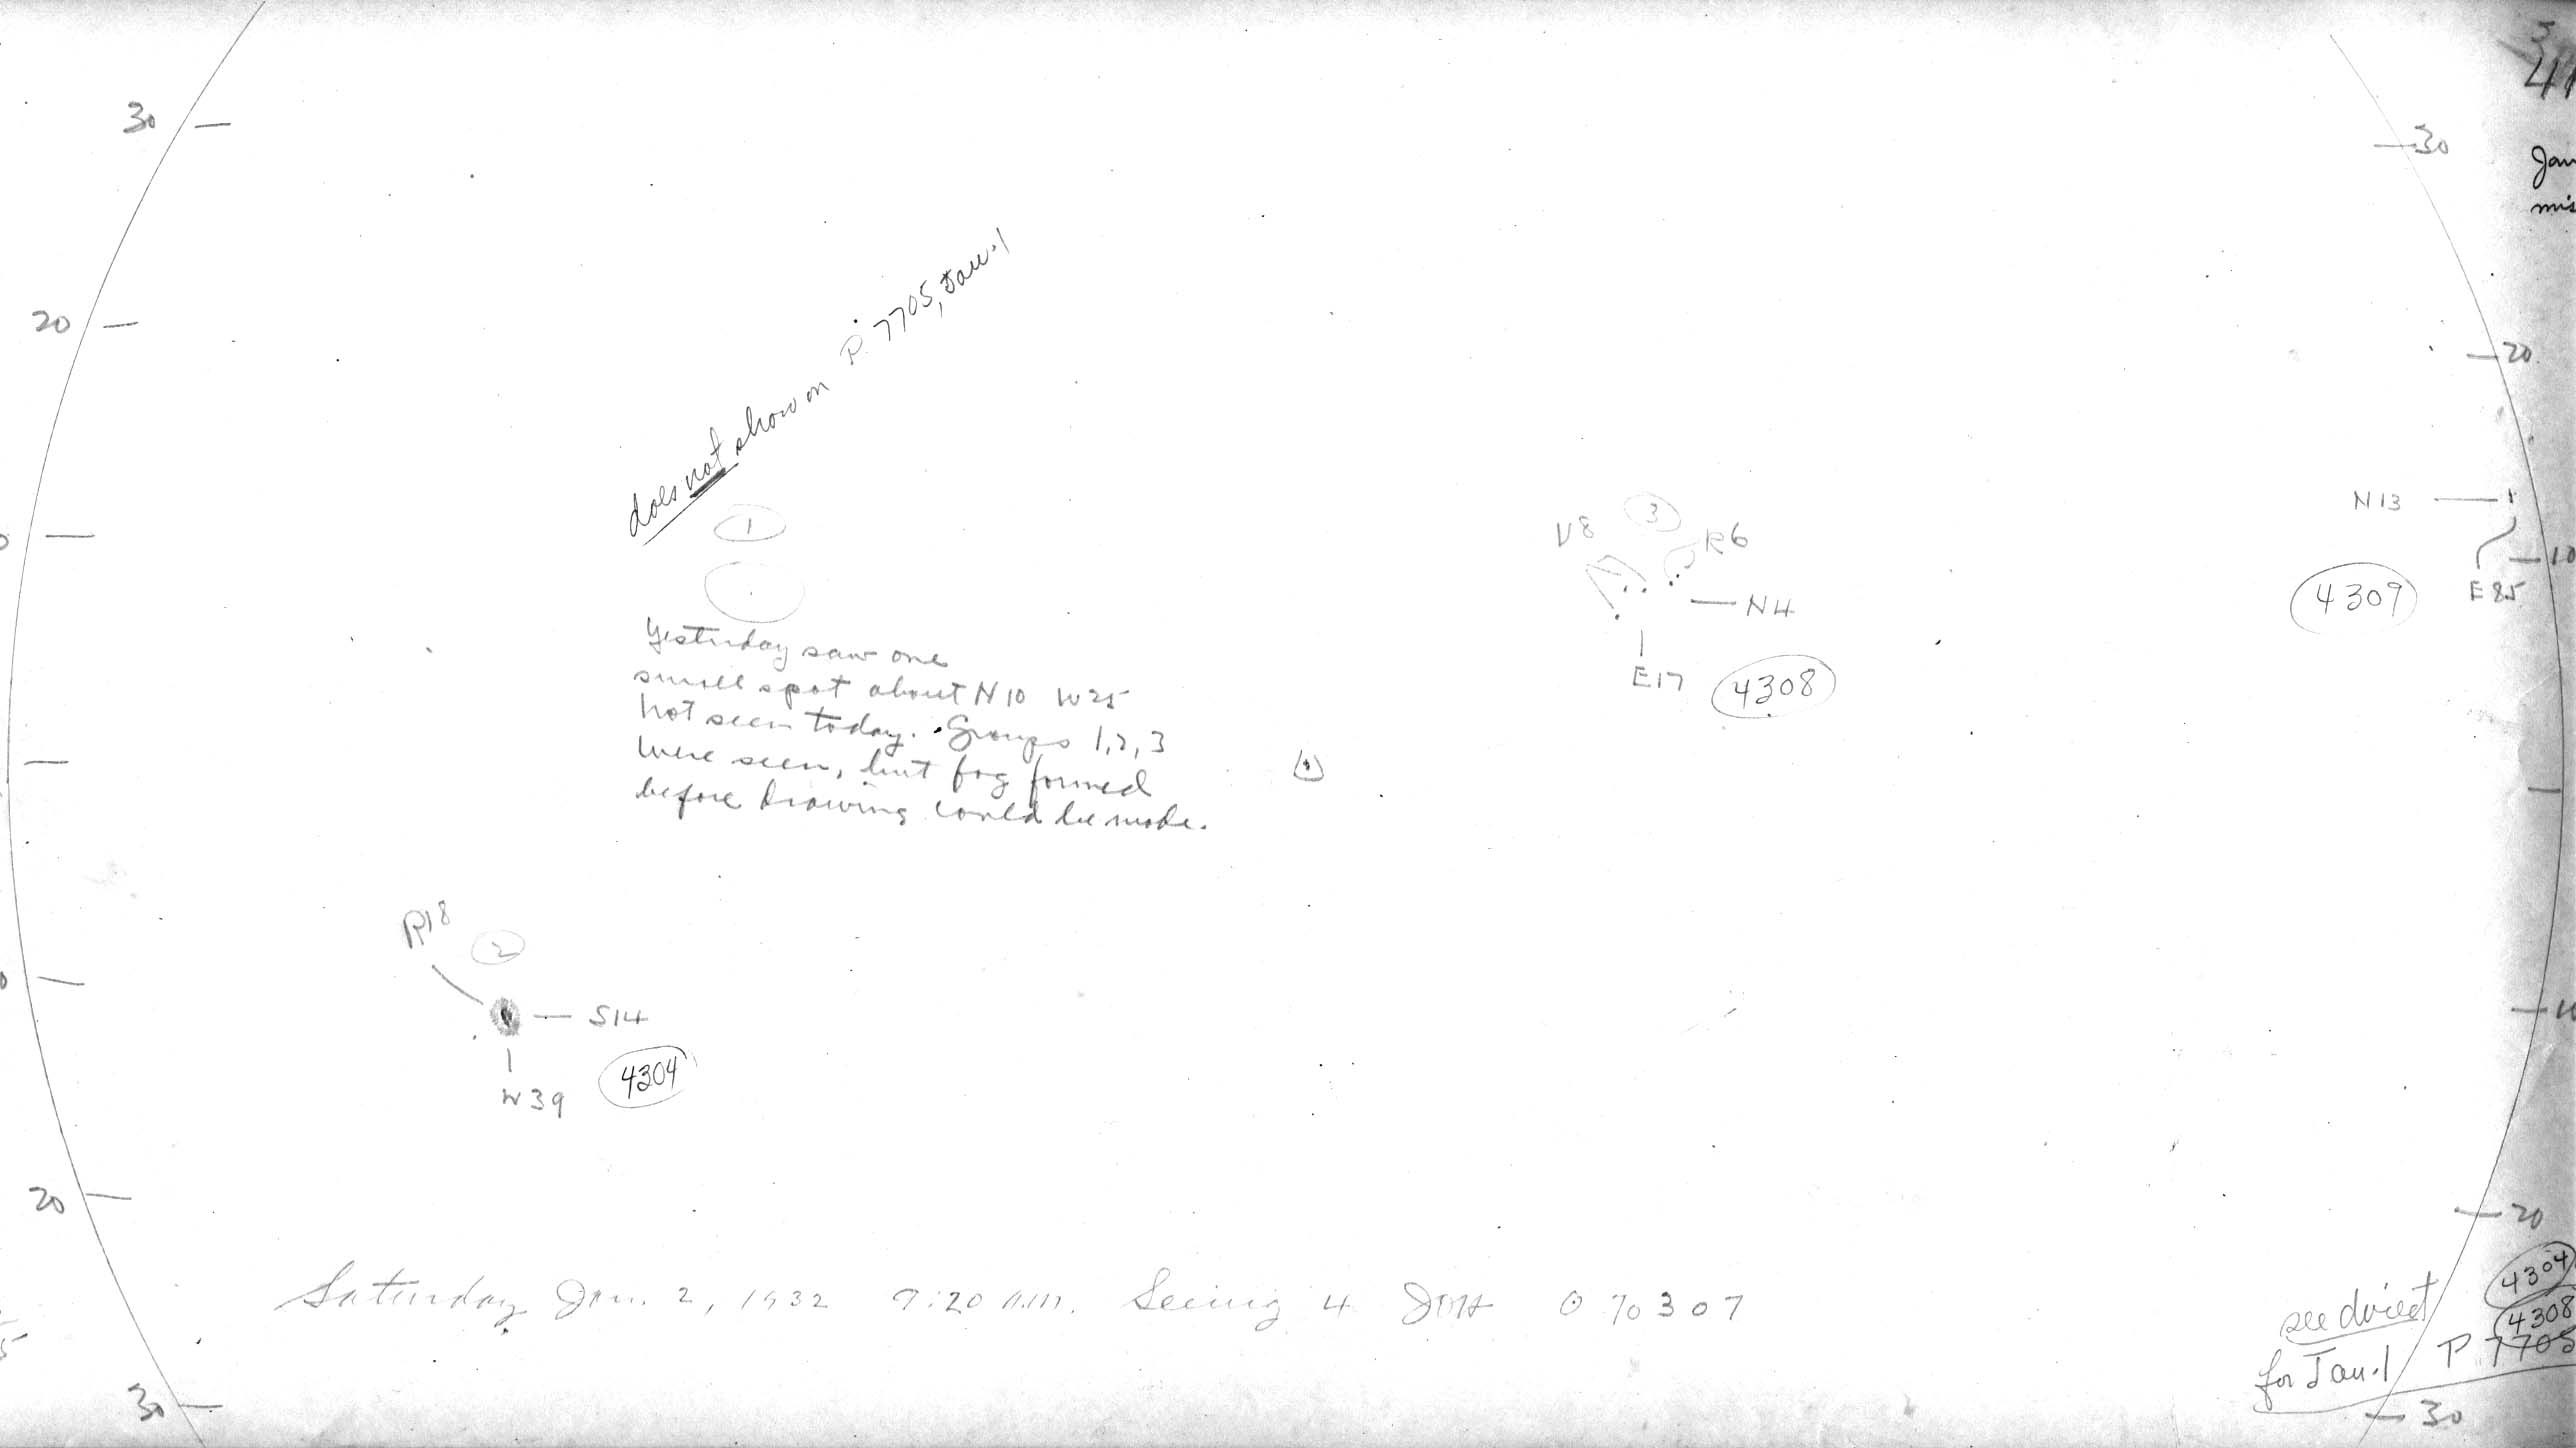 30
30
Jan
mis
20
20
does not show on P 7705, Jan. 1
1
3
V8
R6
N13
10
E85
4309
N4
E17
4308
Yesterday saw one
small spot about N10 W25
not seen today. Groups 1, 2, 3
were seen, but fog formed
before drawing could be made.
R18
2
S14
W39
4304
10
20
20
Saturday Jan. 2, 1932 9:20 A.M. Seeing 4
4304
4308
see direct
for Jan. 1 P 7705
30
30